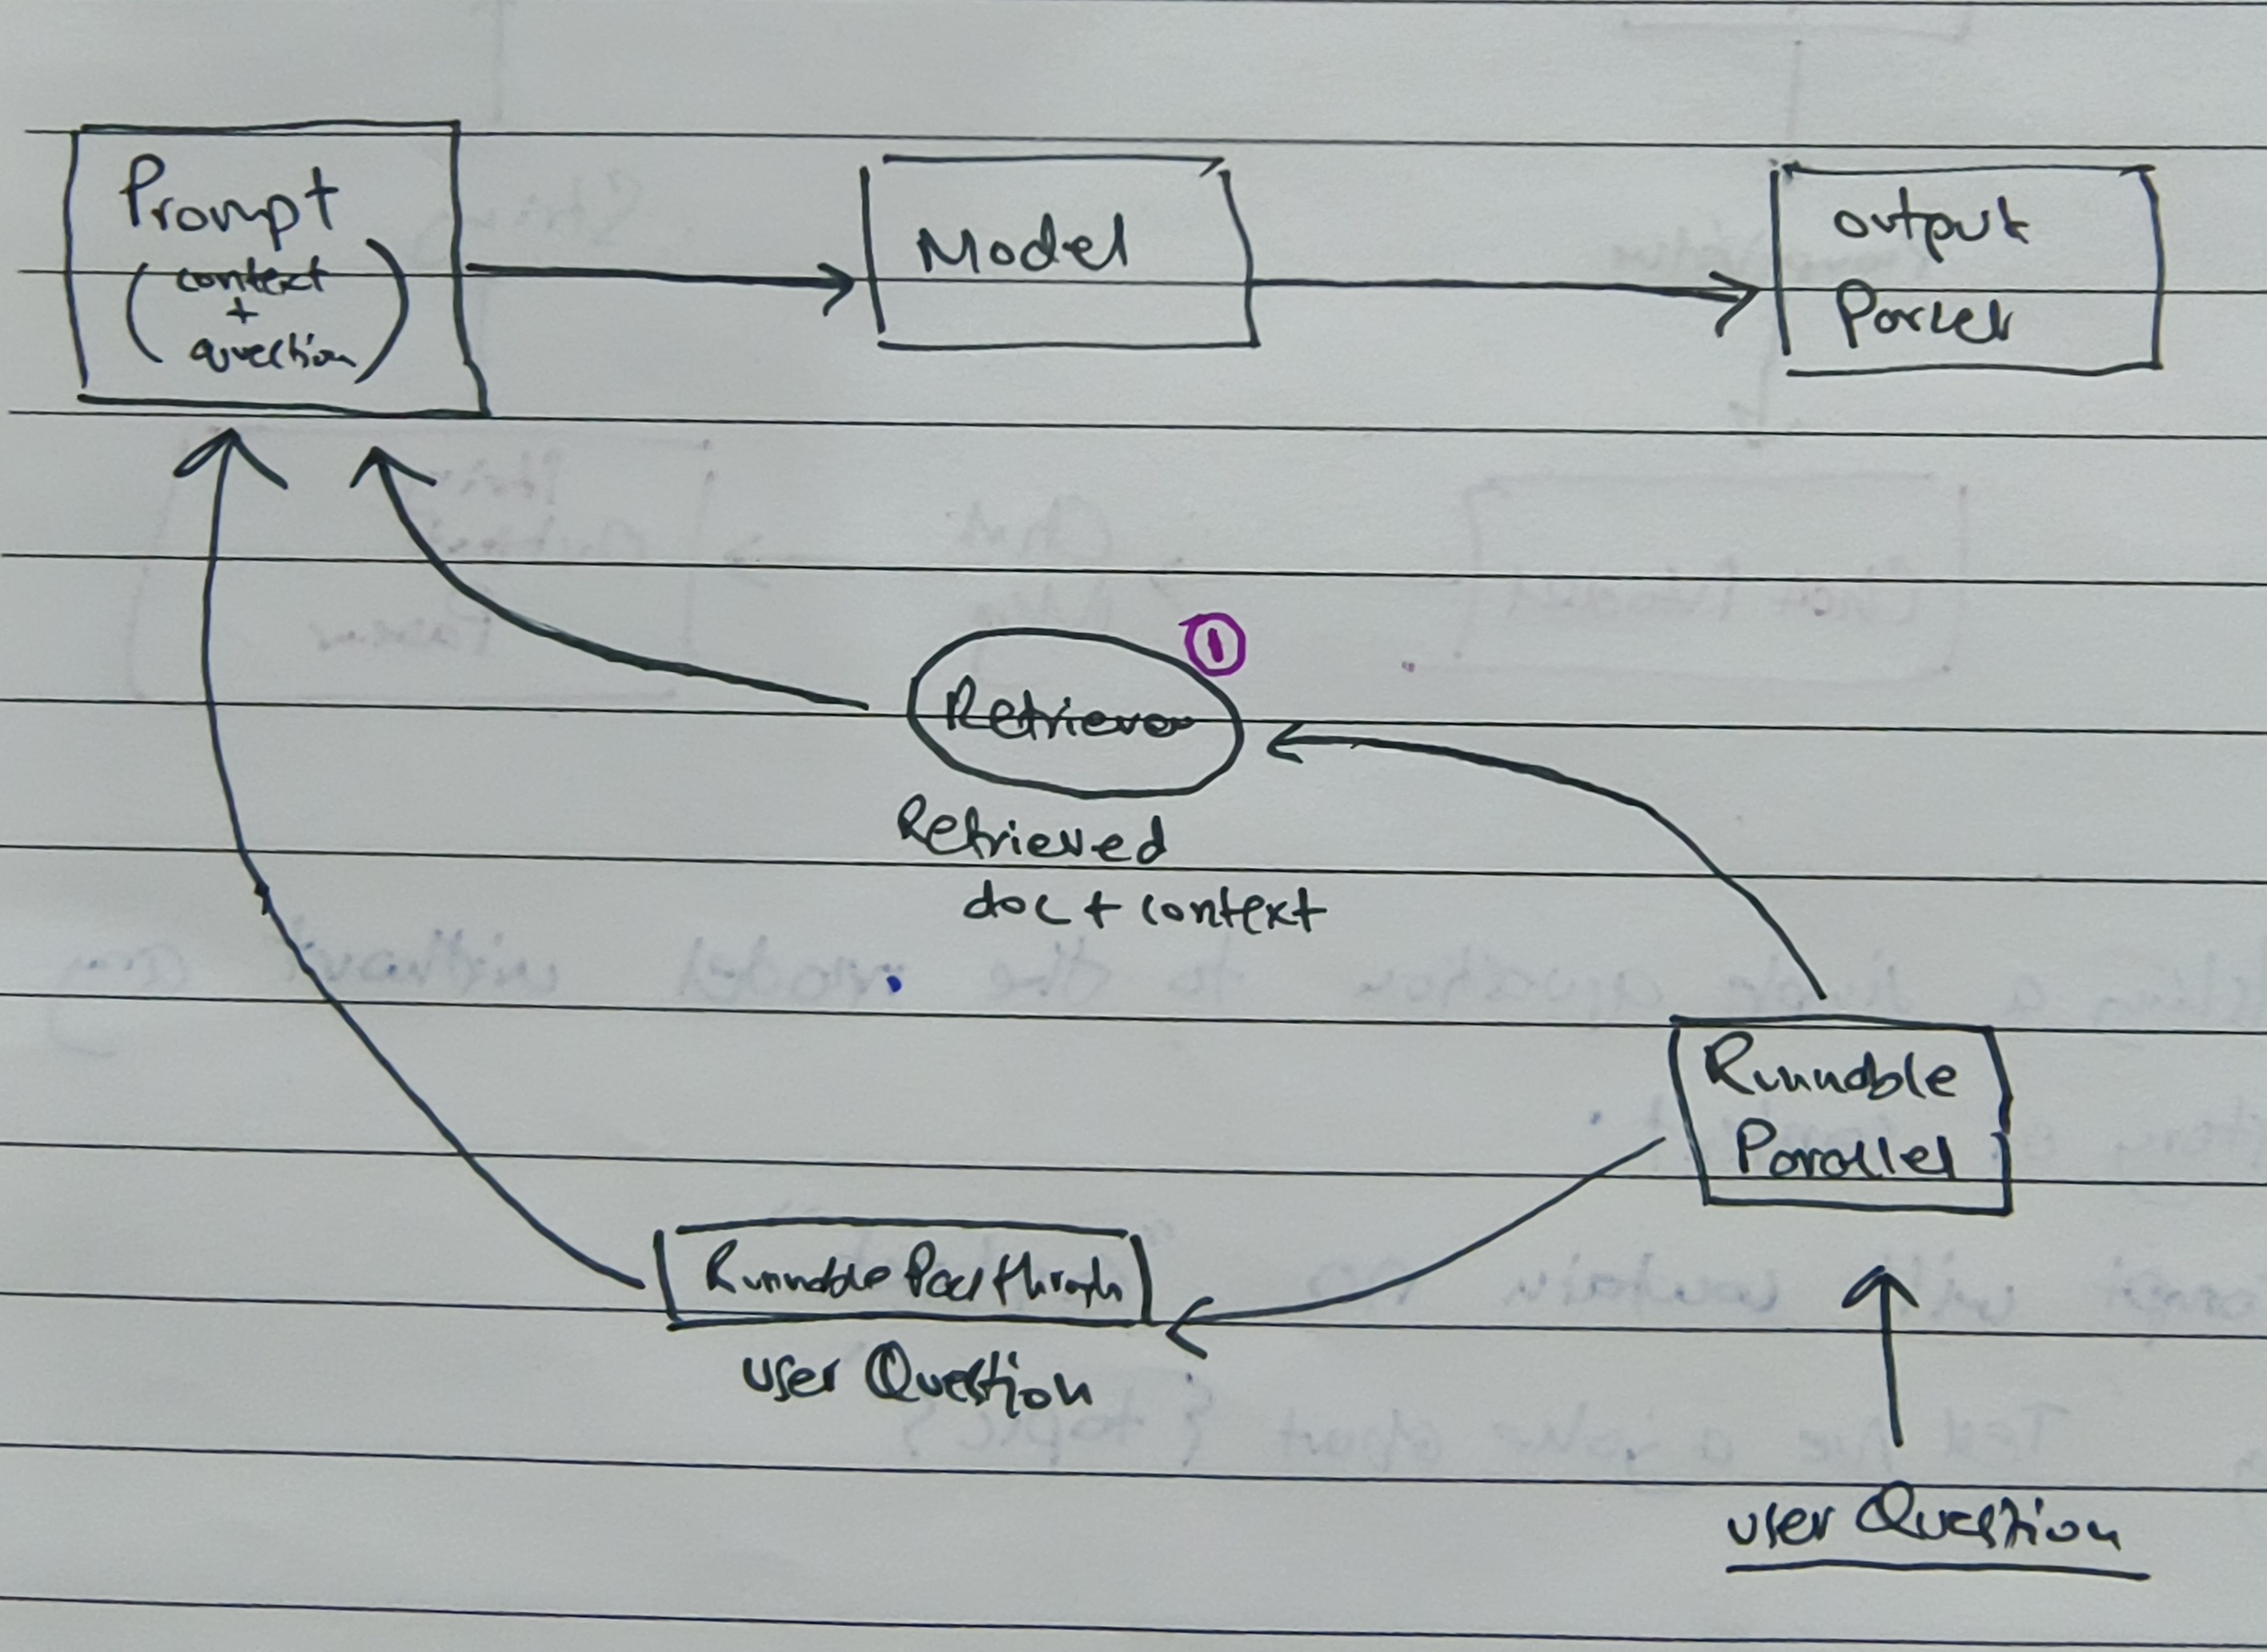 Prompt
(context
+
question)
Model
output
Parser
1
Retriever
Retrieved
doc + context
Runnable
Parallel
Runnable Passthrough
user Question
user Question